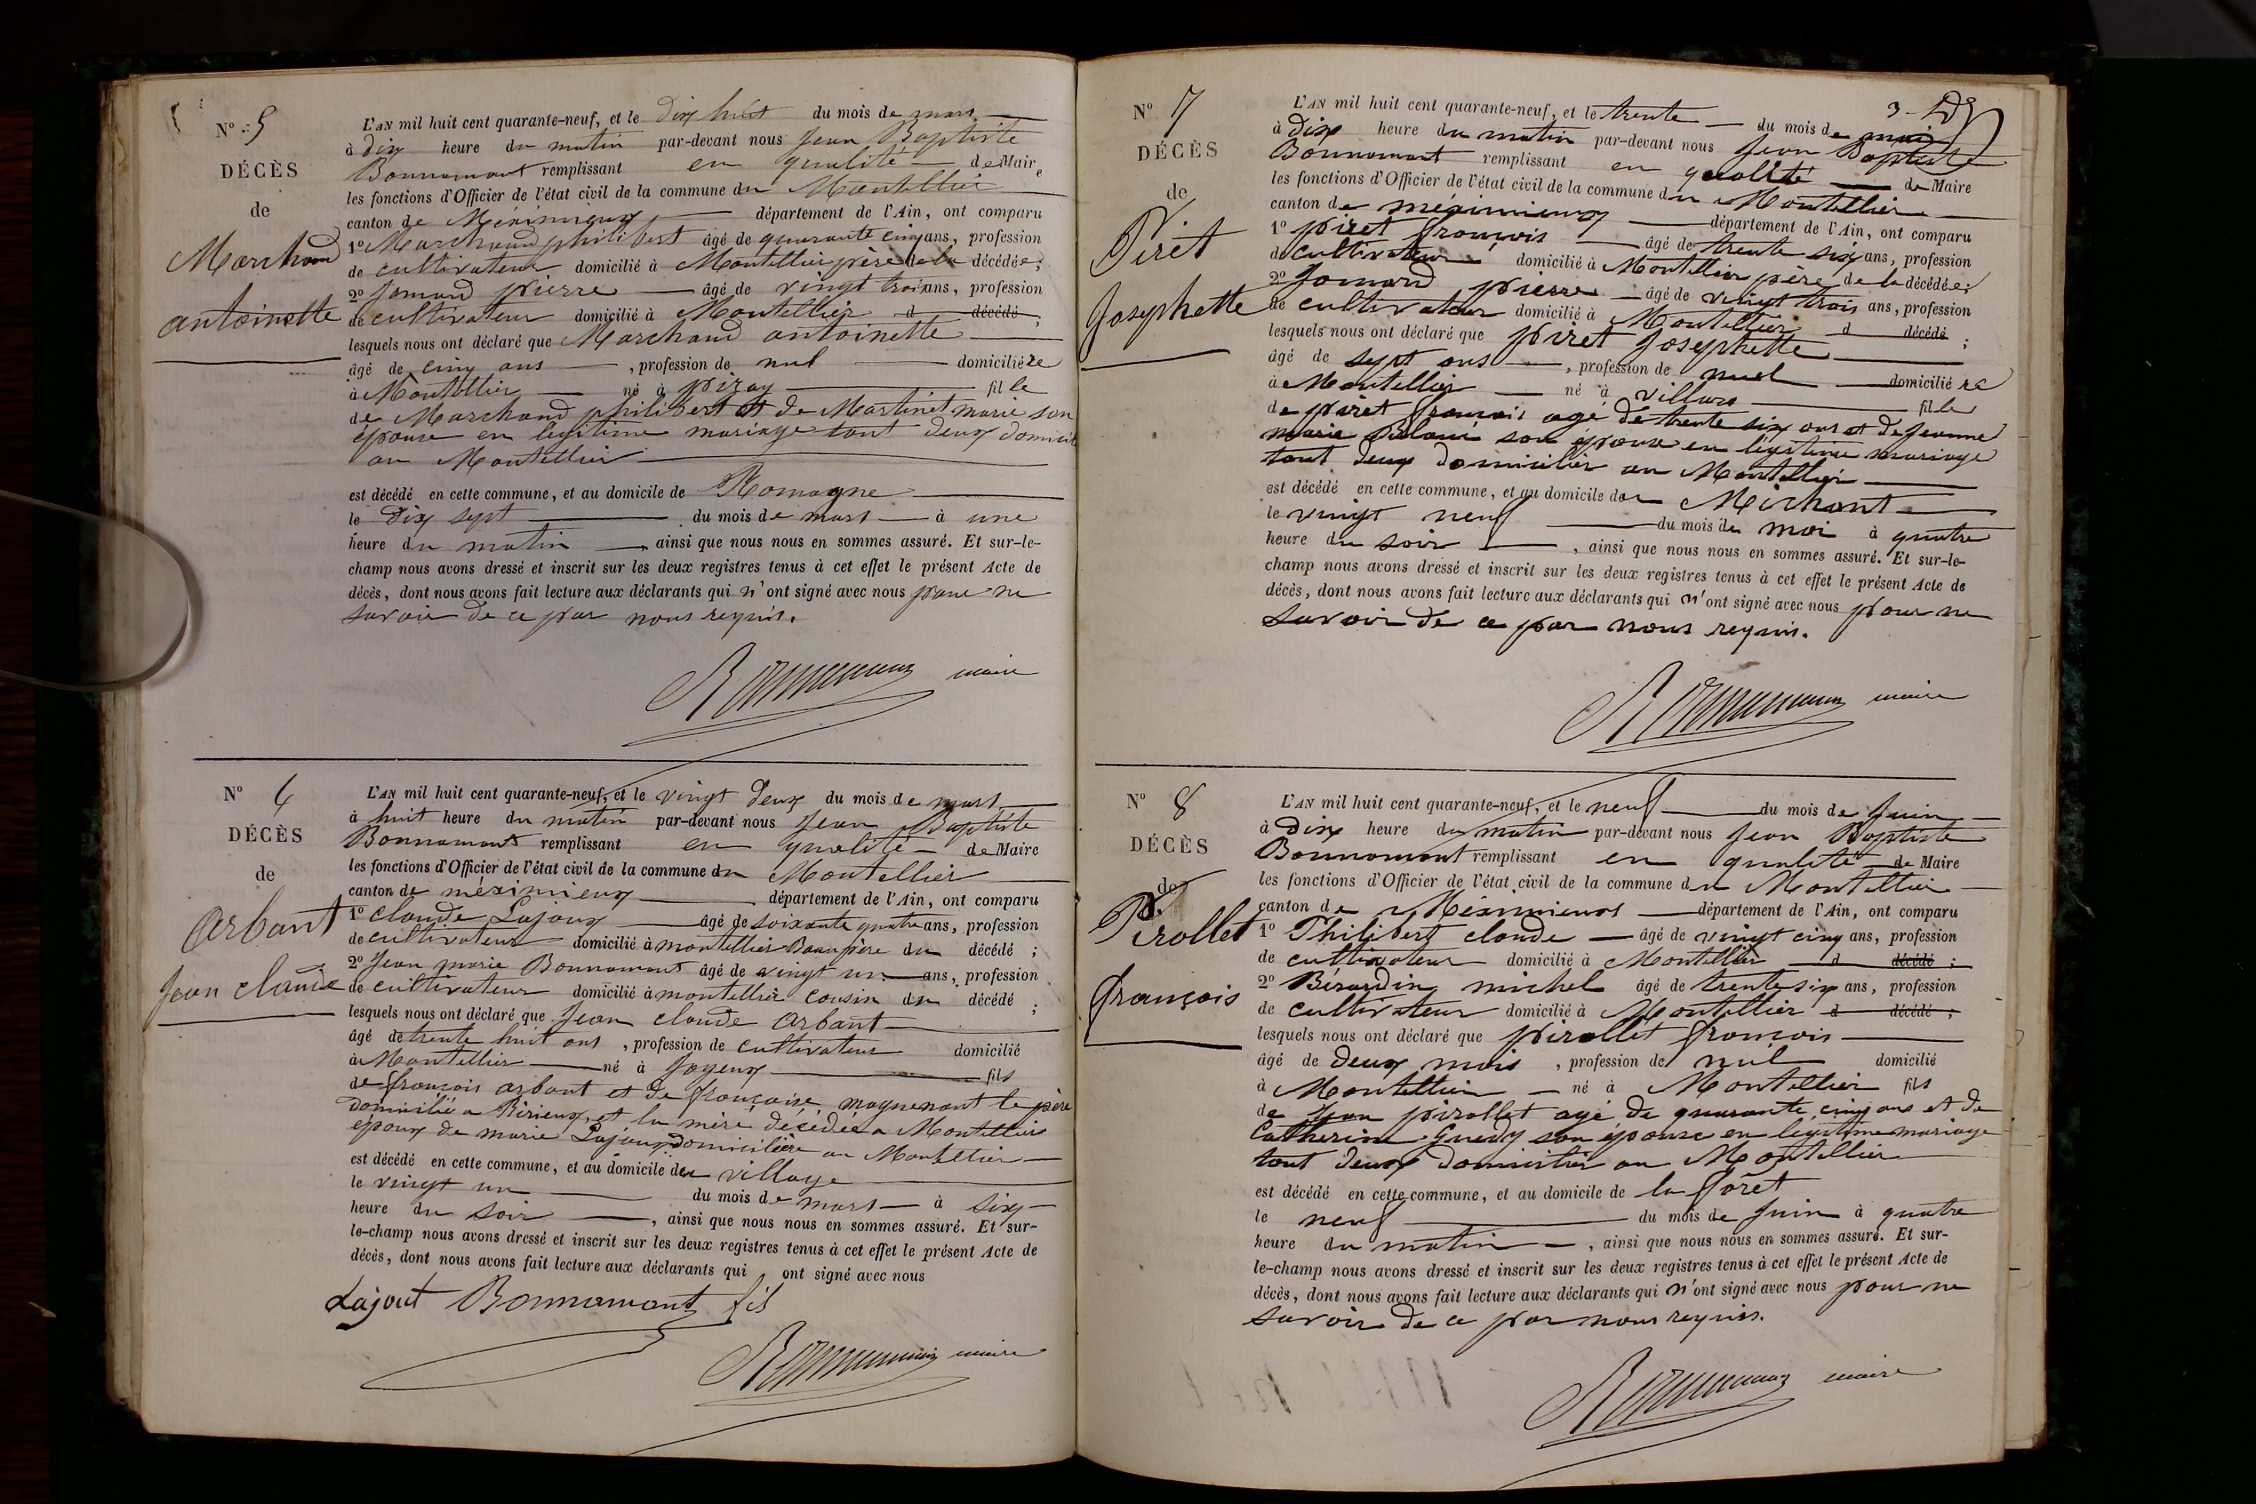 N° 5
DÉCÈS
de
Marchand
antoinette
L'AN mil huit cent quarante-neuf, et le Dix huit du mois de mars
à dix heure du matin par-devant nous Jean Baptiste
Bonnamont remplissant en qualité de Maire
les fonctions d'Officier de l'état civil de la commune du Montellier
canton de Méximieux département de l'Ain, ont comparu
1° Marchand philibert âgé de quarante cinq ans, profession
de cultivateur domicilié à Montellier père de la décédée;
2° Jomard pierre âgé de vingt trois ans, profession
de cultivateur domicilié à Montellier d décédé;
lesquels nous ont déclaré que Marchand antoinette
âgé de cinq ans, profession de nul domiciliére
à Montellier né à pizay fille
de Marchand philibert et de Martinet marie son
épouse en légitime mariage tout deux domicilié
au Montellier
est décédé en cette commune, et au domicile de Romagne
le Dix sept du mois de mars à une
heure du matin, ainsi que nous nous en sommes assuré. Et sur-le-
champ nous avons dressé et inscrit sur les deux registres tenus à cet effet le présent Acte de
décès, dont nous avons fait lecture aux déclarants qui n'ont signé avec nous pour ne
savoir de ce par nous requis.
Bonnamont maire
N° 6
DÉCÈS
de
Arbant
Jean claude
L'AN mil huit cent quarante-neuf, et le vingt deux du mois de mars
à huit heure du matin par-devant nous Jean Baptiste
Bonnamont remplissant en qualité de Maire
les fonctions d'Officier de l'état civil de la commune du Montellier
canton de méximieux département de l'Ain, ont comparu
1° claude Lajoux âgé de soixante quatre ans, profession
de cultivateur domicilié à montellier Beaupère du décédé;
2° Jean marie Bonnamont âgé de vingt un ans, profession
de cultivateur domicilié à montellier cousin du décédé;
lesquels nous ont déclaré que Jean claude Arbant
âgé de trente huit ans, profession de cultivateur domicilié
à Montellier né à Joyeux fils
de françois arbant et de françoise moquenant le père
domicilié a Birieux et la mère décédée a Montellier
époux de marie Lajoux domiciliére au Montellier
est décédé en cette commune, et au domicile du village
le vingt un du mois de mars à six
heure du soir, ainsi que nous nous en sommes assuré. Et sur-
le-champ nous avons dressé et inscrit sur les deux registres tenus à cet effet le présent Acte de
décès, dont nous avons fait lecture aux déclarants qui ont signé avec nous
Lajout Bonnamont fils
Bonnamont maire
N° 7
DÉCÈS
de
Piret
Josephette
L'AN mil huit cent quarante-neuf, et le trente du mois de mai
à Dix heure du matin par-devant nous Jean Baptiste
Bonnamont remplissant en qualité de Maire
les fonctions d'Officier de l'état civil de la commune du Montellier
canton de méximieux département de l'Ain, ont comparu
1° piret françois âgé de trente six ans, profession
de cultivateur domicilié à Montellier père de la décédée;
2° Jomard pierre âgé de vingt trois ans, profession
de cultivateur domicilié à Montellier d décédé;
lesquels nous ont déclaré que piret Josephette
âgé de sept ans, profession de nuel domiciliére
à Montellier né à villars fille
de piret françois agé de trente six ans et de Jeanne
marie son épouse en légitime mariage
tout deux domicilier au Montellier
est décédé en cette commune, et au domicile du Michont
le vingt neuf du mois de mai à quatre
heure du soir, ainsi que nous nous en sommes assuré. Et sur-le-
champ nous avons dressé et inscrit sur les deux registres tenus à cet effet le présent Acte de
décès, dont nous avons fait lecture aux déclarants qui n'ont signé avec nous pour ne
savoir de ce par nous requis.
Bonnamont maire
N° 8
DÉCÈS
de
Pirollet
françois
L'AN mil huit cent quarante-neuf, et le neuf du mois de Juin
à Dix heure du matin par-devant nous Jean Baptiste
Bonnamont remplissant en qualité de Maire
les fonctions d'Officier de l'état civil de la commune du Montellier
canton de Méximieux département de l'Ain, ont comparu
1° Philibert claude âgé de vingt cinq ans, profession
de cultivateur domicilié à Montellier d décédé;
2° Bérardin michel âgé de trente six ans, profession
de cultivateur domicilié à Montellier d décédé;
lesquels nous ont déclaré que pirollet françois
âgé de Deux mois, profession de nul domicilié
à Montellier né à Montellier fils
de Jean pirollet agé de quarante cinq ans et de
Catherine Guedy son épouse en légitime mariage
tout deux domicilier au Montellier
est décédé en cette commune, et au domicile de la forêt
le neuf du mois de Juin à quatre
heure du matin, ainsi que nous nous en sommes assuré. Et sur-
le-champ nous avons dressé et inscrit sur les deux registres tenus à cet effet le présent Acte de
décès, dont nous avons fait lecture aux déclarants qui n'ont signé avec nous pour ne
savoir de ce par nous requis.
Bonnamont maire